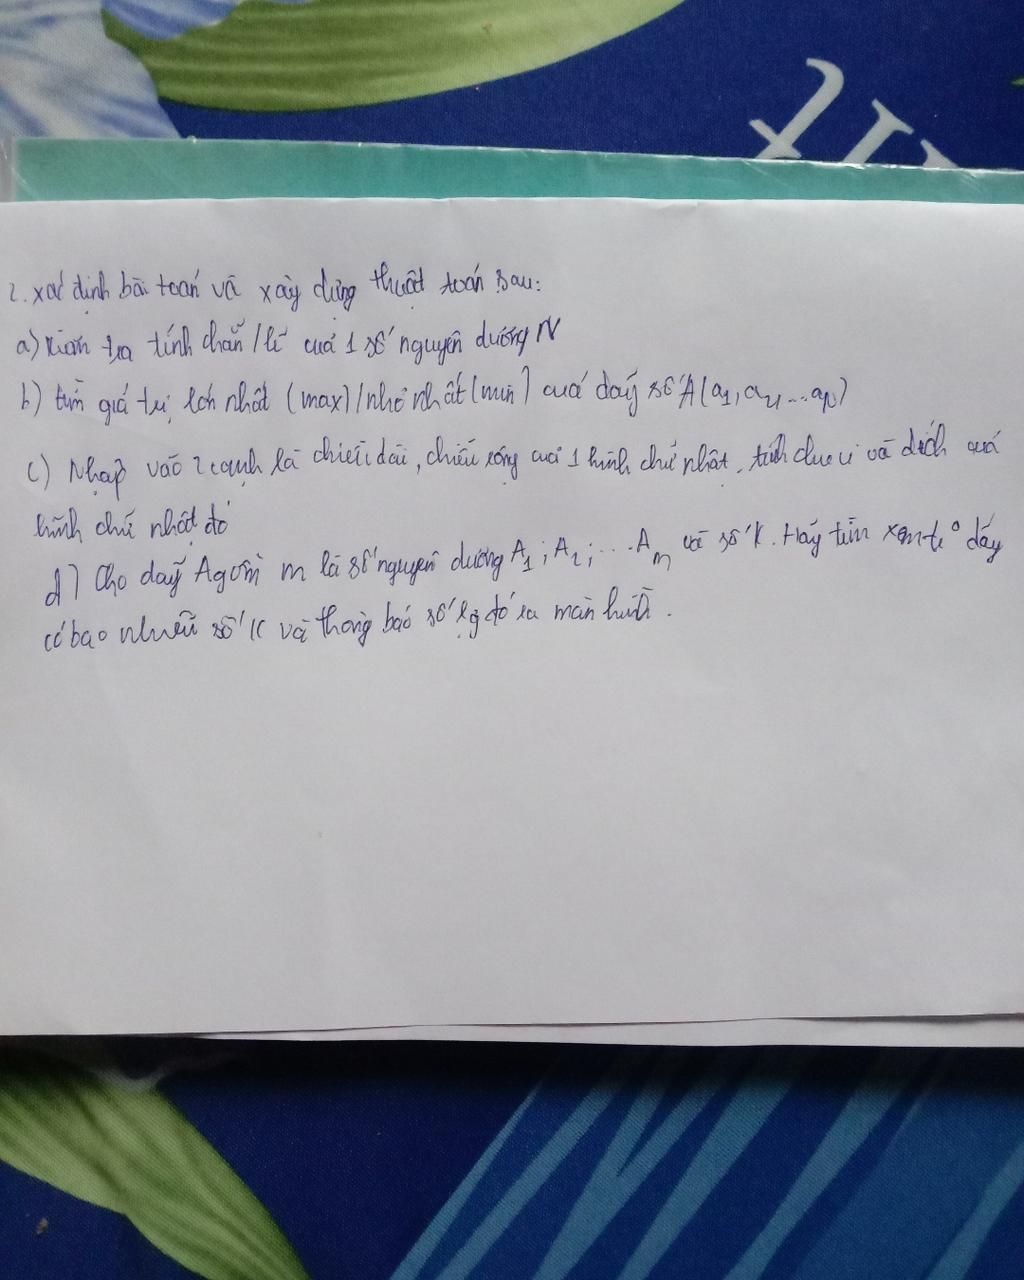 2. xác định bài toán và xây dựng thuật toán sau:
a) Kiểm tra tính chẵn / lẻ của 1 số nguyên dương N
b) tìm giá trị lớn nhất (max) / nhỏ nhất (min) của dãy số A (a1, a2, ... an)
c) Nhập vào 2 cạnh là chiều dài, chiều rộng của 1 hình chữ nhật, tính chu vi và diện của
hình chữ nhật đó
d) Cho dãy A gồm m là số nguyên dương A1; A2; ... Am và số K. Hãy tìm xem dãy
có bao nhiêu số K và thông báo số lg đó ra màn hình.